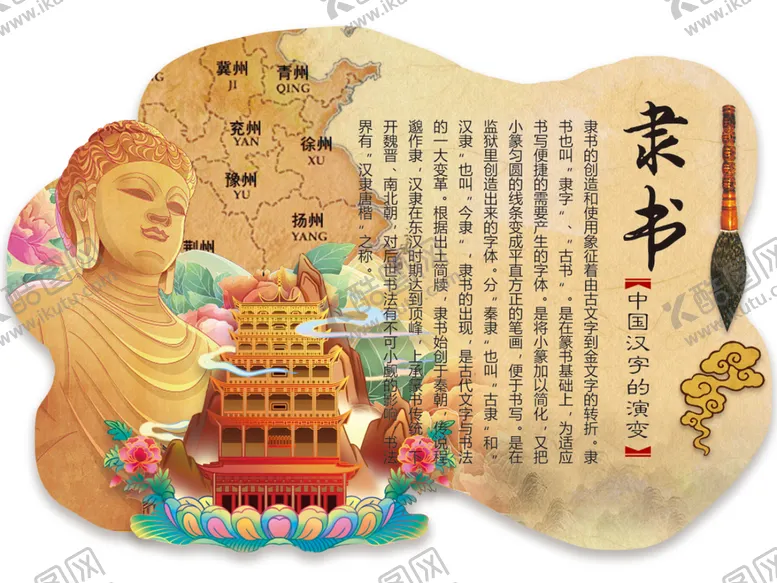 隶书
【中国汉字的演变】
隶书的创造和使用象征着由古文字到金文字的转折。隶
书也叫“隶字”、“古书”。是在篆书基础上，为适应
书写便捷的需要产生的字体。是将小篆加以简化，又把
小篆匀圆的线条变成平直方正的笔画，便于书写。是在
监狱里创造出来的字体。分“秦隶”也叫“古隶”和“
汉隶“也叫“今隶”，隶书的出现，是古代文字与书法
的一大变革。根据出土简牍，隶书始创于秦朝，传说程
邈作隶，汉隶在东汉时期达到顶峰，上承篆书传统，下
开魏晋、南北朝，对后世书法有不可小觑的影响，书法
界有“汉隶唐楷”之称。
冀州
JI
青州
QING
兖州
YAN
徐州
XU
豫州
YU
扬州
YANG
荆州
酷图网
www.ikutu.com